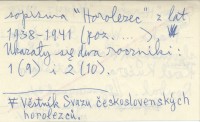 sopisma "Horolezec" z lat
1938-1941 (poz. ... )
Ukazały się dwa roczniki:
1 (9) i 2 (10).
* Věstník Svazu československých
horolezců.